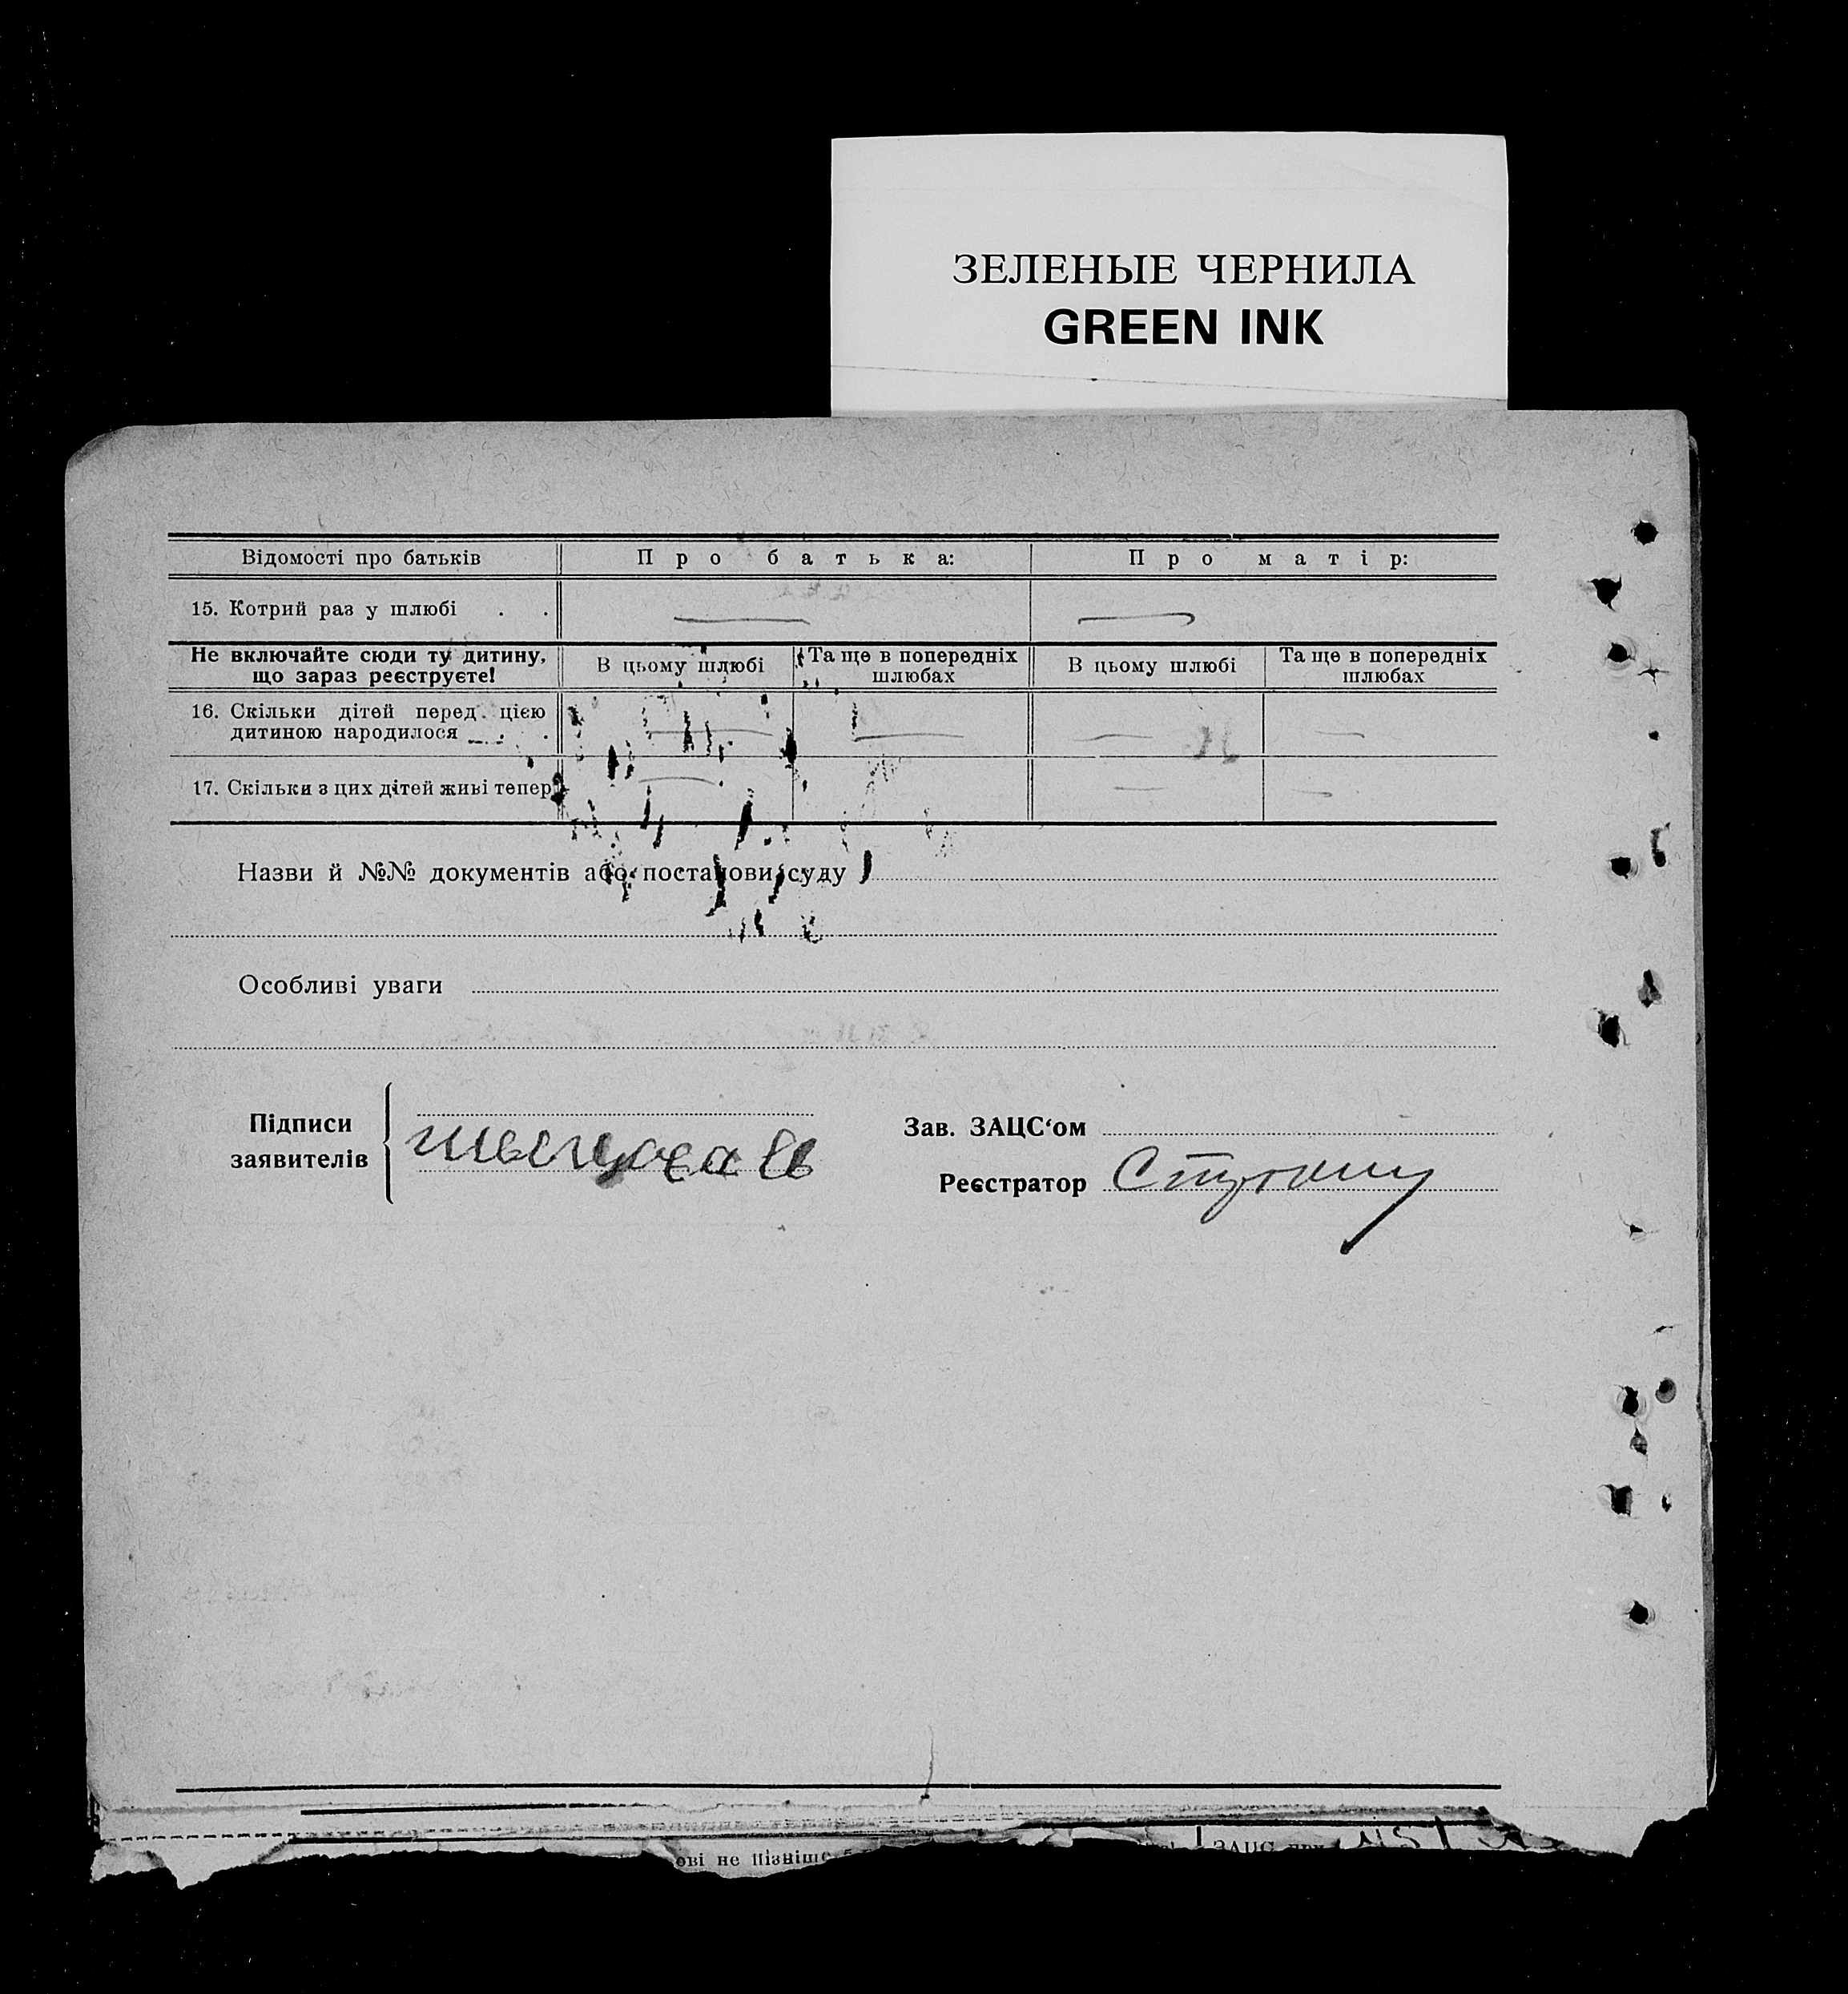 ЗЕЛЕНЫЕ ЧЕРНИЛА
GREEN INK
Відомості про батьків Про батька: Про матір:
15. Котрий раз у шлюбі . . — —
Не включайте сюди ту дитину, що зараз реєструєте!
В цьому шлюбі
Та ще в попередніх шлюбах
В цьому шлюбі
Та ще в попередніх шлюбах
16. Скільки дітей перед цією
дитиною народилося . . — — — —
17. Скільки з цих дітей живі тепер — — —
Назви й №№ документів або постанови суду
Особливі уваги
Підписи
заявителів
Зав. ЗАЦС‘ом
Реєстратор
ові не пізніше
ЗАЦС